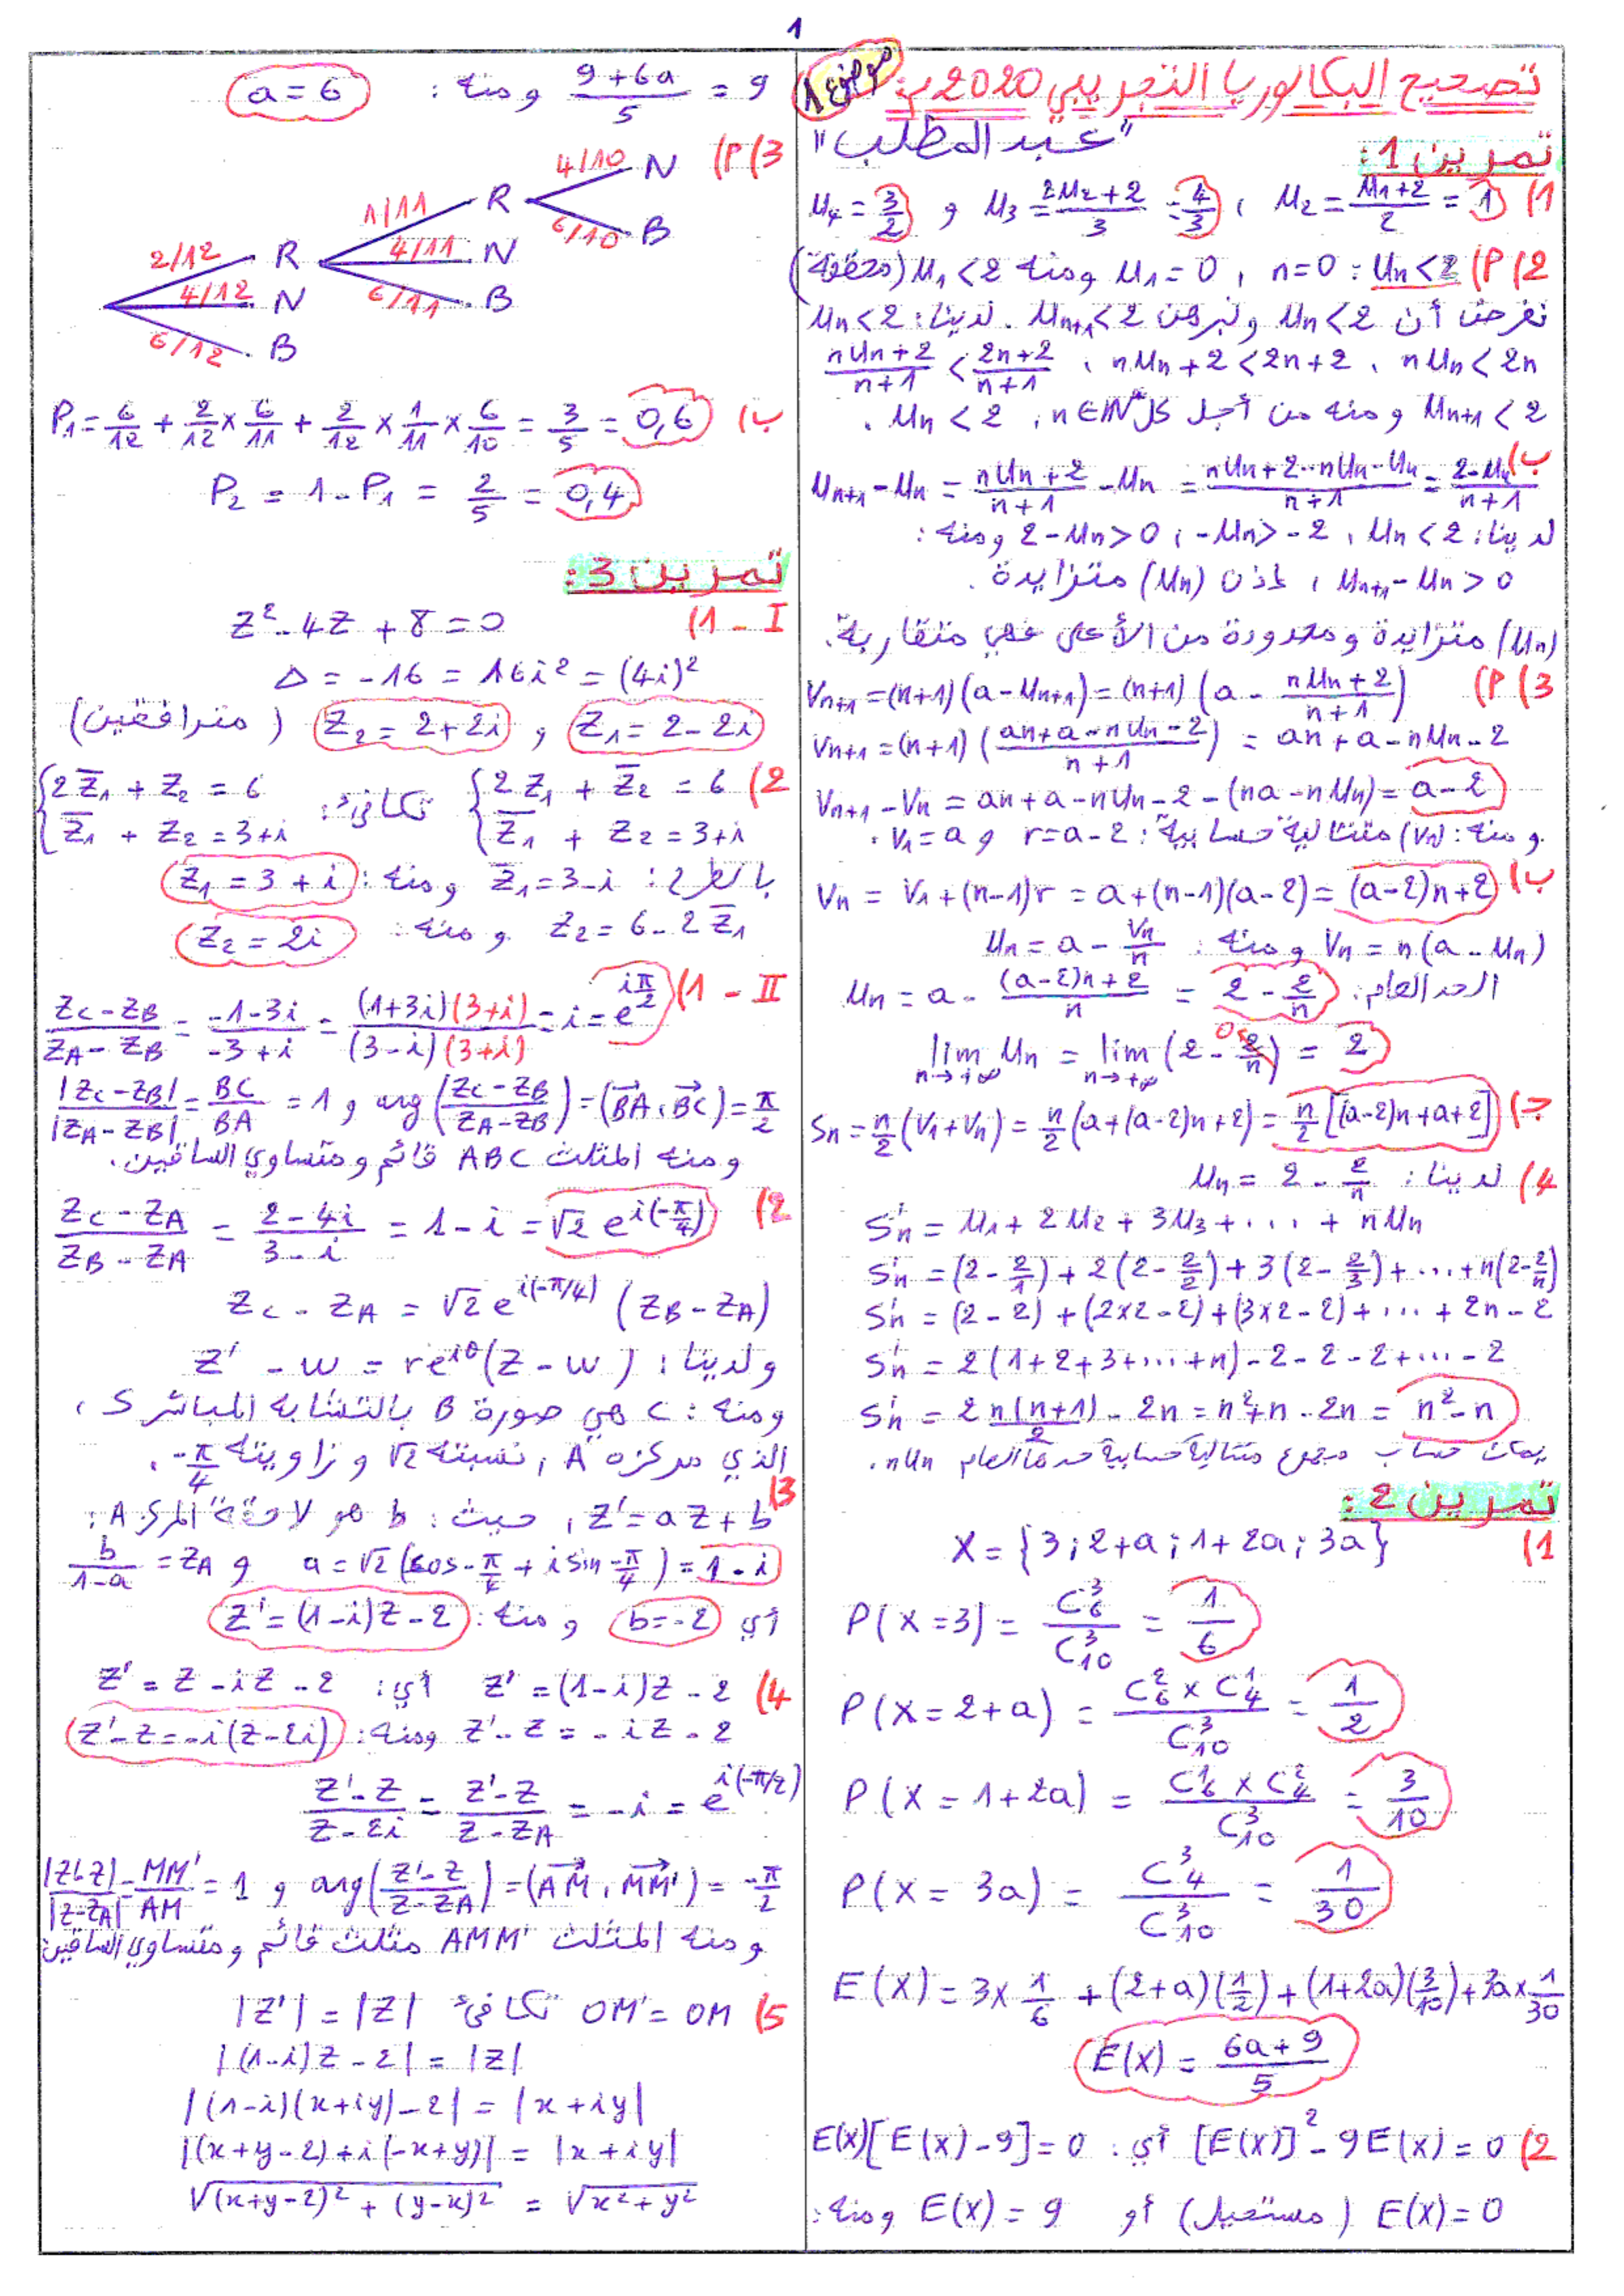 1
تصحيح البكالوريا التجريبي 2020 م: موضوع 1
"عبد المطلب"
تمرين 1:
1) u₂ = (u₁+2)/2 = 1 ، u₃ = (2u₂+2)/3 = 4/3 و u₄ = 3/2
2) أ) uₙ < 2 : n=0 ، u₁ = 0 ومنه u₁ < 2 (محققة)
نفرض أن uₙ < 2 ونبرهن uₙ₊₁ < 2 . لدينا: uₙ < 2
nuₙ < 2n ، nuₙ + 2 < 2n + 2 ، (nuₙ+2)/(n+1) < (2n+2)/(n+1)
uₙ₊₁ < 2 ومنه من أجل كل n∈ℕ* ، uₙ < 2 .
ب) uₙ₊₁ - uₙ = (nuₙ+2)/(n+1) - uₙ = (nuₙ+2-nuₙ-uₙ)/(n+1) = (2-uₙ)/(n+1)
لدينا: uₙ < 2 ، -uₙ > -2 ، 2-uₙ > 0 ومنه:
uₙ₊₁ - uₙ > 0 ، إذن (uₙ) متزايدة .
(uₙ) متزايدة ومحدودة من الأعلى فهي متقاربة.
3) أ) vₙ₊₁ = (n+1)(a-uₙ₊₁) = (n+1)(a - (nuₙ+2)/(n+1))
vₙ₊₁ = (n+1)((an+a-nuₙ-2)/(n+1)) = an+a-nuₙ-2
vₙ₊₁ - vₙ = an+a-nuₙ-2-(na-nuₙ) = a-2
ومنه: (vₙ) متتالية حسابية: r = a-2 و v₁ = a .
ب) vₙ = v₁+(n-1)r = a+(n-1)(a-2) = (a-2)n+2
vₙ = n(a-uₙ) ومنه: uₙ = a - vₙ/n
الحد العام: uₙ = a - ((a-2)n+2)/n = 2 - 2/n
lim n→+∞ uₙ = lim n→+∞ (2 - 2/n) = 2
ج) Sₙ = n/2 (v₁+vₙ) = n/2 (a+(a-2)n+2) = n/2 [(a-2)n+a+2]
4) لدينا: uₙ = 2 - 2/n
S'ₙ = u₁ + 2u₂ + 3u₃ + ... + nuₙ
S'ₙ = (2-2/1) + 2(2-2/2) + 3(2-2/3) + ... + n(2-2/n)
S'ₙ = (2-2) + (2×2-2) + (3×2-2) + ... + 2n-2
S'ₙ = 2(1+2+3+...+n) -2-2-2+...-2
S'ₙ = 2 n(n+1)/2 - 2n = n²+n-2n = n²-n
يمكن حساب مجموع متتالية حسابية حدها العام nuₙ .
تمرين 2:
1) X = {3 ; 2+a ; 1+2a ; 3a}
P(X=3) = C³₆/C³₁₀ = 1/6
P(X=2+a) = (C²₆ × C¹₄)/C³₁₀ = 1/2
P(X=1+2a) = (C¹₆ × C²₄)/C³₁₀ = 3/10
P(X=3a) = C³₄/C³₁₀ = 1/30
E(X) = 3×1/6 + (2+a)(1/2) + (1+2a)(3/10) + 3a×1/30
E(X) = (6a+9)/5
2) [E(X)]² - 9E(X) = 0 أي: E(X)[E(X)-9] = 0
E(X) = 0 (مستحيل) أو E(X) = 9 ومنه:
(9+6a)/5 = 9 ومنه: a = 6
3) أ)
4/10 N
1/11 R
6/10 B
2/12 R
4/11 N
4/12 N
6/11 B
6/12 B
ب) P₁ = 6/12 + 2/12 × 6/11 + 2/12 × 1/11 × 6/10 = 3/5 = 0,6
P₂ = 1 - P₁ = 2/5 = 0,4
تمرين 3:
I - 1) z² - 4z + 8 = 0
Δ = -16 = 16i² = (4i)²
z₁ = 2-2i و z₂ = 2+2i (مترافقين)
2) {2z₁ + z̄₂ = 6 تكافئ: {2z̄₁ + z₂ = 6
{z̄₁ + z₂ = 3+i {z̄₁ + z₂ = 3+i
بالطرح: z̄₁ = 3-i ومنه: z₁ = 3+i
z₂ = 6-2z̄₁ ومنه: z₂ = 2i
II - 1) (z_C-z_B)/(z_A-z_B) = (-1-3i)/(-3+i) = (1+3i)(3+i)/(3-i)(3+i) = i = e^(iπ/2)
|z_C-z_B|/|z_A-z_B| = BC/BA = 1 و arg((z_C-z_B)/(z_A-z_B)) = (BA⃗ , BC⃗) = π/2
ومنه المثلث ABC قائم ومتساوي الساقين.
2) (z_C-z_A)/(z_B-z_A) = (2-4i)/(3-i) = 1-i = √2 e^(i(-π/4))
z_C - z_A = √2 e^(i(-π/4)) (z_B - z_A)
ولدينا: z' - w = re^(iθ)(z-w)
ومنه: C هي صورة B بالتشابه المباشر S ،
الذي مركزه A ، نسبته √2 و زاويته -π/4 .
3) z' = az+b ، حيث: b هو لاحقة المركز A :
a = √2(cos -π/4 + i sin -π/4) = 1-i و b/(1-a) = z_A
أي b = -2 ومنه: z' = (1-i)z-2
4) z' = (1-i)z-2 أي: z' = z-iz-2
z'-z = -iz-2 ومنه: z'-z = -i(z-2i)
(z'-z)/(z-2i) = (z'-z)/(z-z_A) = -i = e^(i(-π/2))
|z'-z|/|z-z_A| = MM'/AM = 1 و arg((z'-z)/(z-z_A)) = (AM⃗ , MM'⃗) = -π/2
ومنه المثلث AMM' مثلث قائم ومتساوي الساقين
5) OM' = OM تكافئ |z'| = |z|
|(1-i)z-2| = |z|
|(1-i)(x+iy)-2| = |x+iy|
|(x+y-2)+i(-x+y)| = |x+iy|
√((x+y-2)²+(y-x)²) = √(x²+y²)